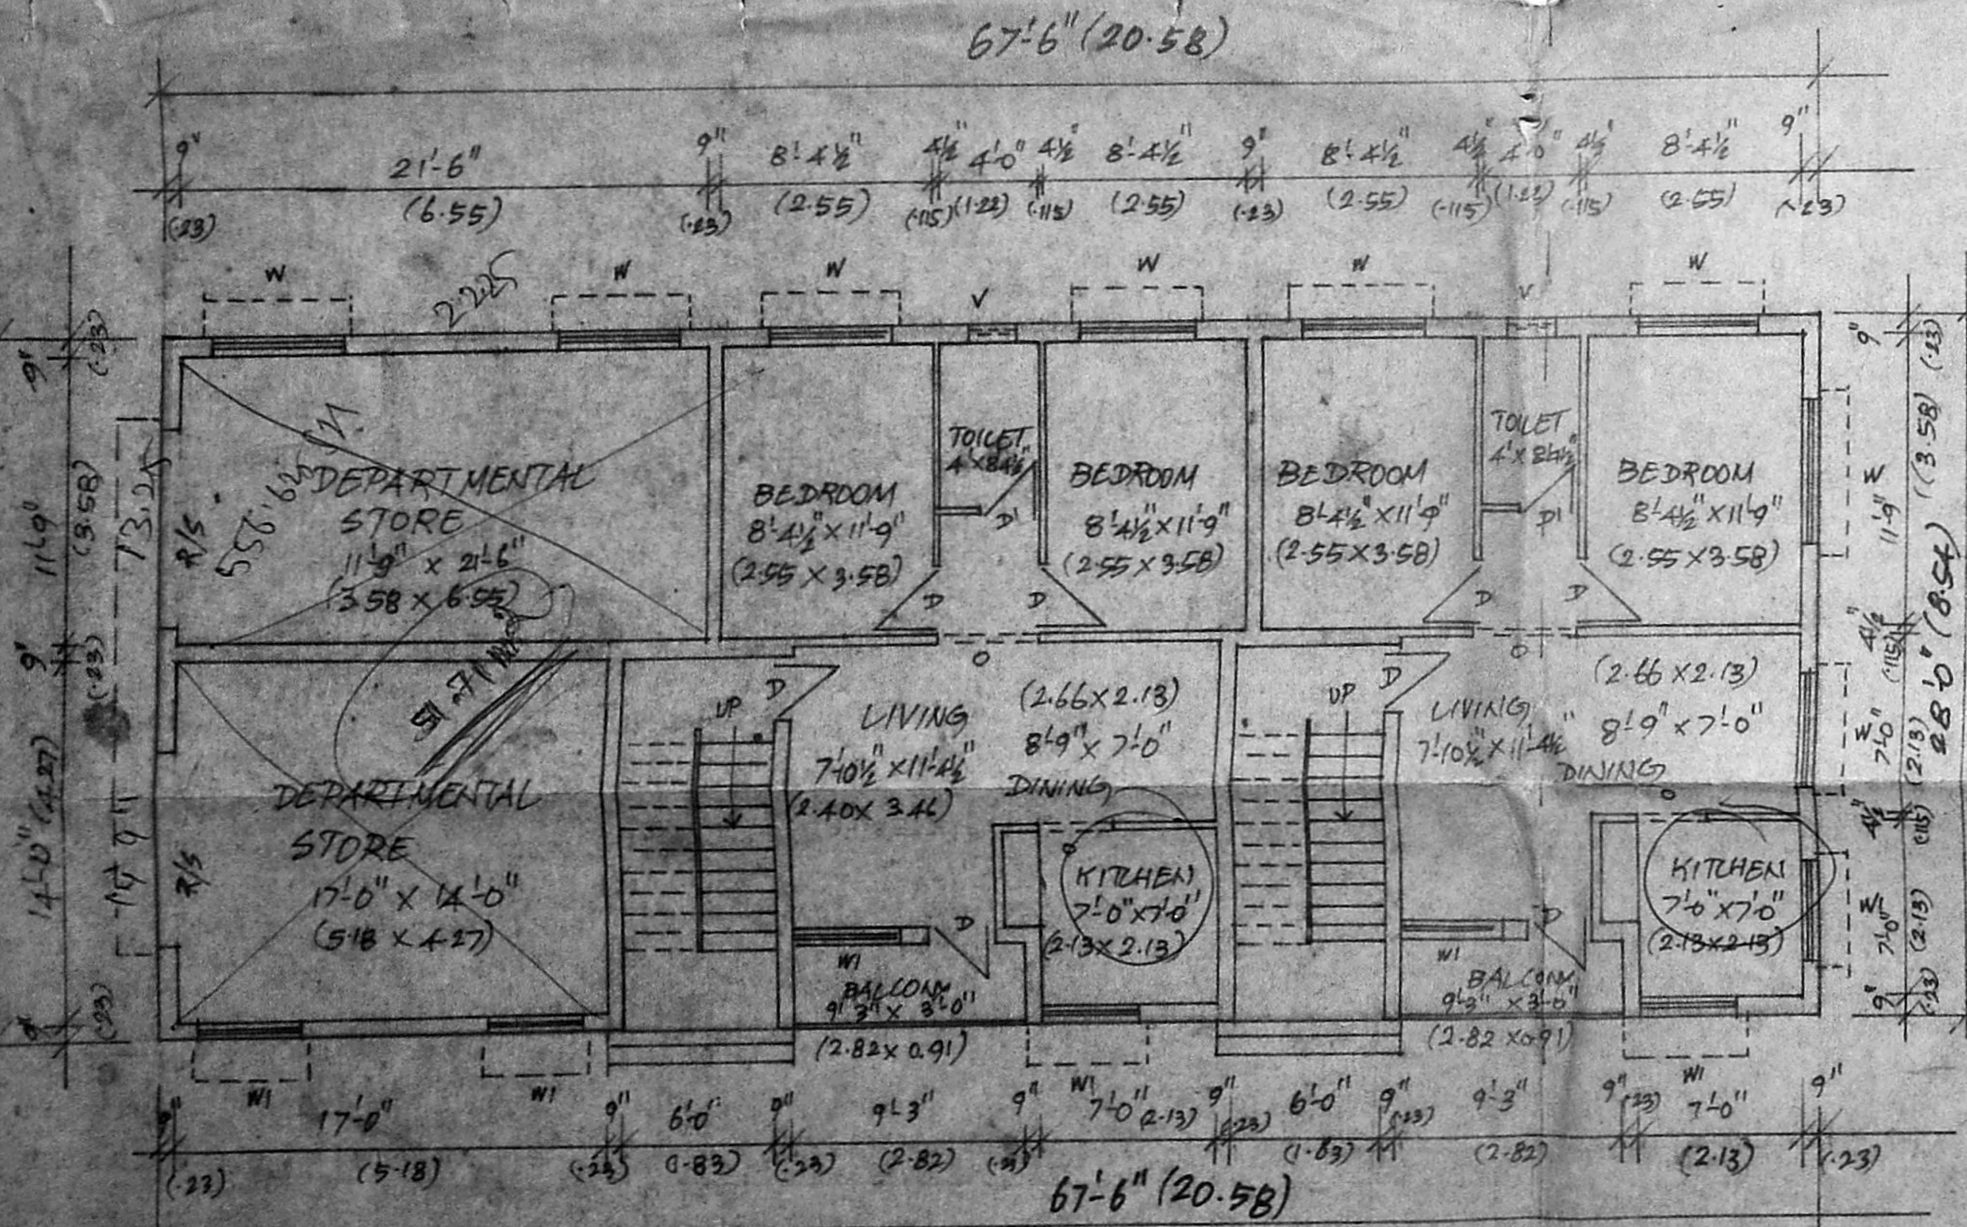 67'-6" (20.58)
9" 21'-6" 9" 8'-4½" 4½" 4'-0" 4½" 8'-4½" 9" 8'-4½" 4½" 4'-0" 4½" 8'-4½" 9"
(.23) (6.55) (.23) (2.55) (.115) (1.22) (.115) (2.55) (.23) (2.55) (.115) (1.22) (.115) (2.55) (.23)
W W W V W W V W
2.225
9" (.23)
11'-9" (3.58)
9" (.23)
14'-0" (4.27)
9" (.23)
13.25
R/S
DEPARTMENTAL
STORE
11'-9" x 21'-6"
(3.58 x 6.55)
BEDROOM
8'-4½" x 11'-9"
(2.55 x 3.58)
TOILET
4' x 8'4½"
D1
BEDROOM
8'-4½" x 11'-9"
(2.55 x 3.58)
BEDROOM
8'-4½" x 11'-9"
(2.55 x 3.58)
TOILET
4' x 8'4½"
D1
BEDROOM
8'-4½" x 11'-9"
(2.55 x 3.58)
D D D D
O O
R/S
DEPARTMENTAL
STORE
17'-0" x 14'-0"
(5.18 x 4.27)
UP
D
LIVING
7'-10½" x 11'-4½"
(2.40 x 3.46)
(2.66 x 2.13)
8'-9" x 7'-0"
DINING
O
KITCHEN
7'-0" x 7'-0"
(2.13 x 2.13)
D
W1
BALCONY
9'-3" x 3'-0"
(2.82 x 0.91)
UP
D
LIVING
7'-10½" x 11'-4½"
(2.66 x 2.13)
8'-9" x 7'-0"
DINING
O
KITCHEN
7'-0" x 7'-0"
(2.13 x 2.13)
D
W1
BALCONY
9'-3" x 3'-0"
(2.82 x 0.91)
9" (.23)
W 11'-9" (3.58)
4½" (.115)
W 7'-0" (2.13)
4½" (.115)
W 7'-0" (2.13)
9" (.23)
28'-0" (8.54)
W1 W1 W1 W1
9" 17'-0" 9" 6'-0" 9" 9'-3" 9" 7'-0" (2.13) 9" 6'-0" 9" 9'-3" 9" 7'-0" 9"
(.23) (5.18) (.23) (1.83) (.23) (2.82) (.23) (.23) (1.83) (.23) (2.82) (.23) (2.13) (.23)
67'-6" (20.58)